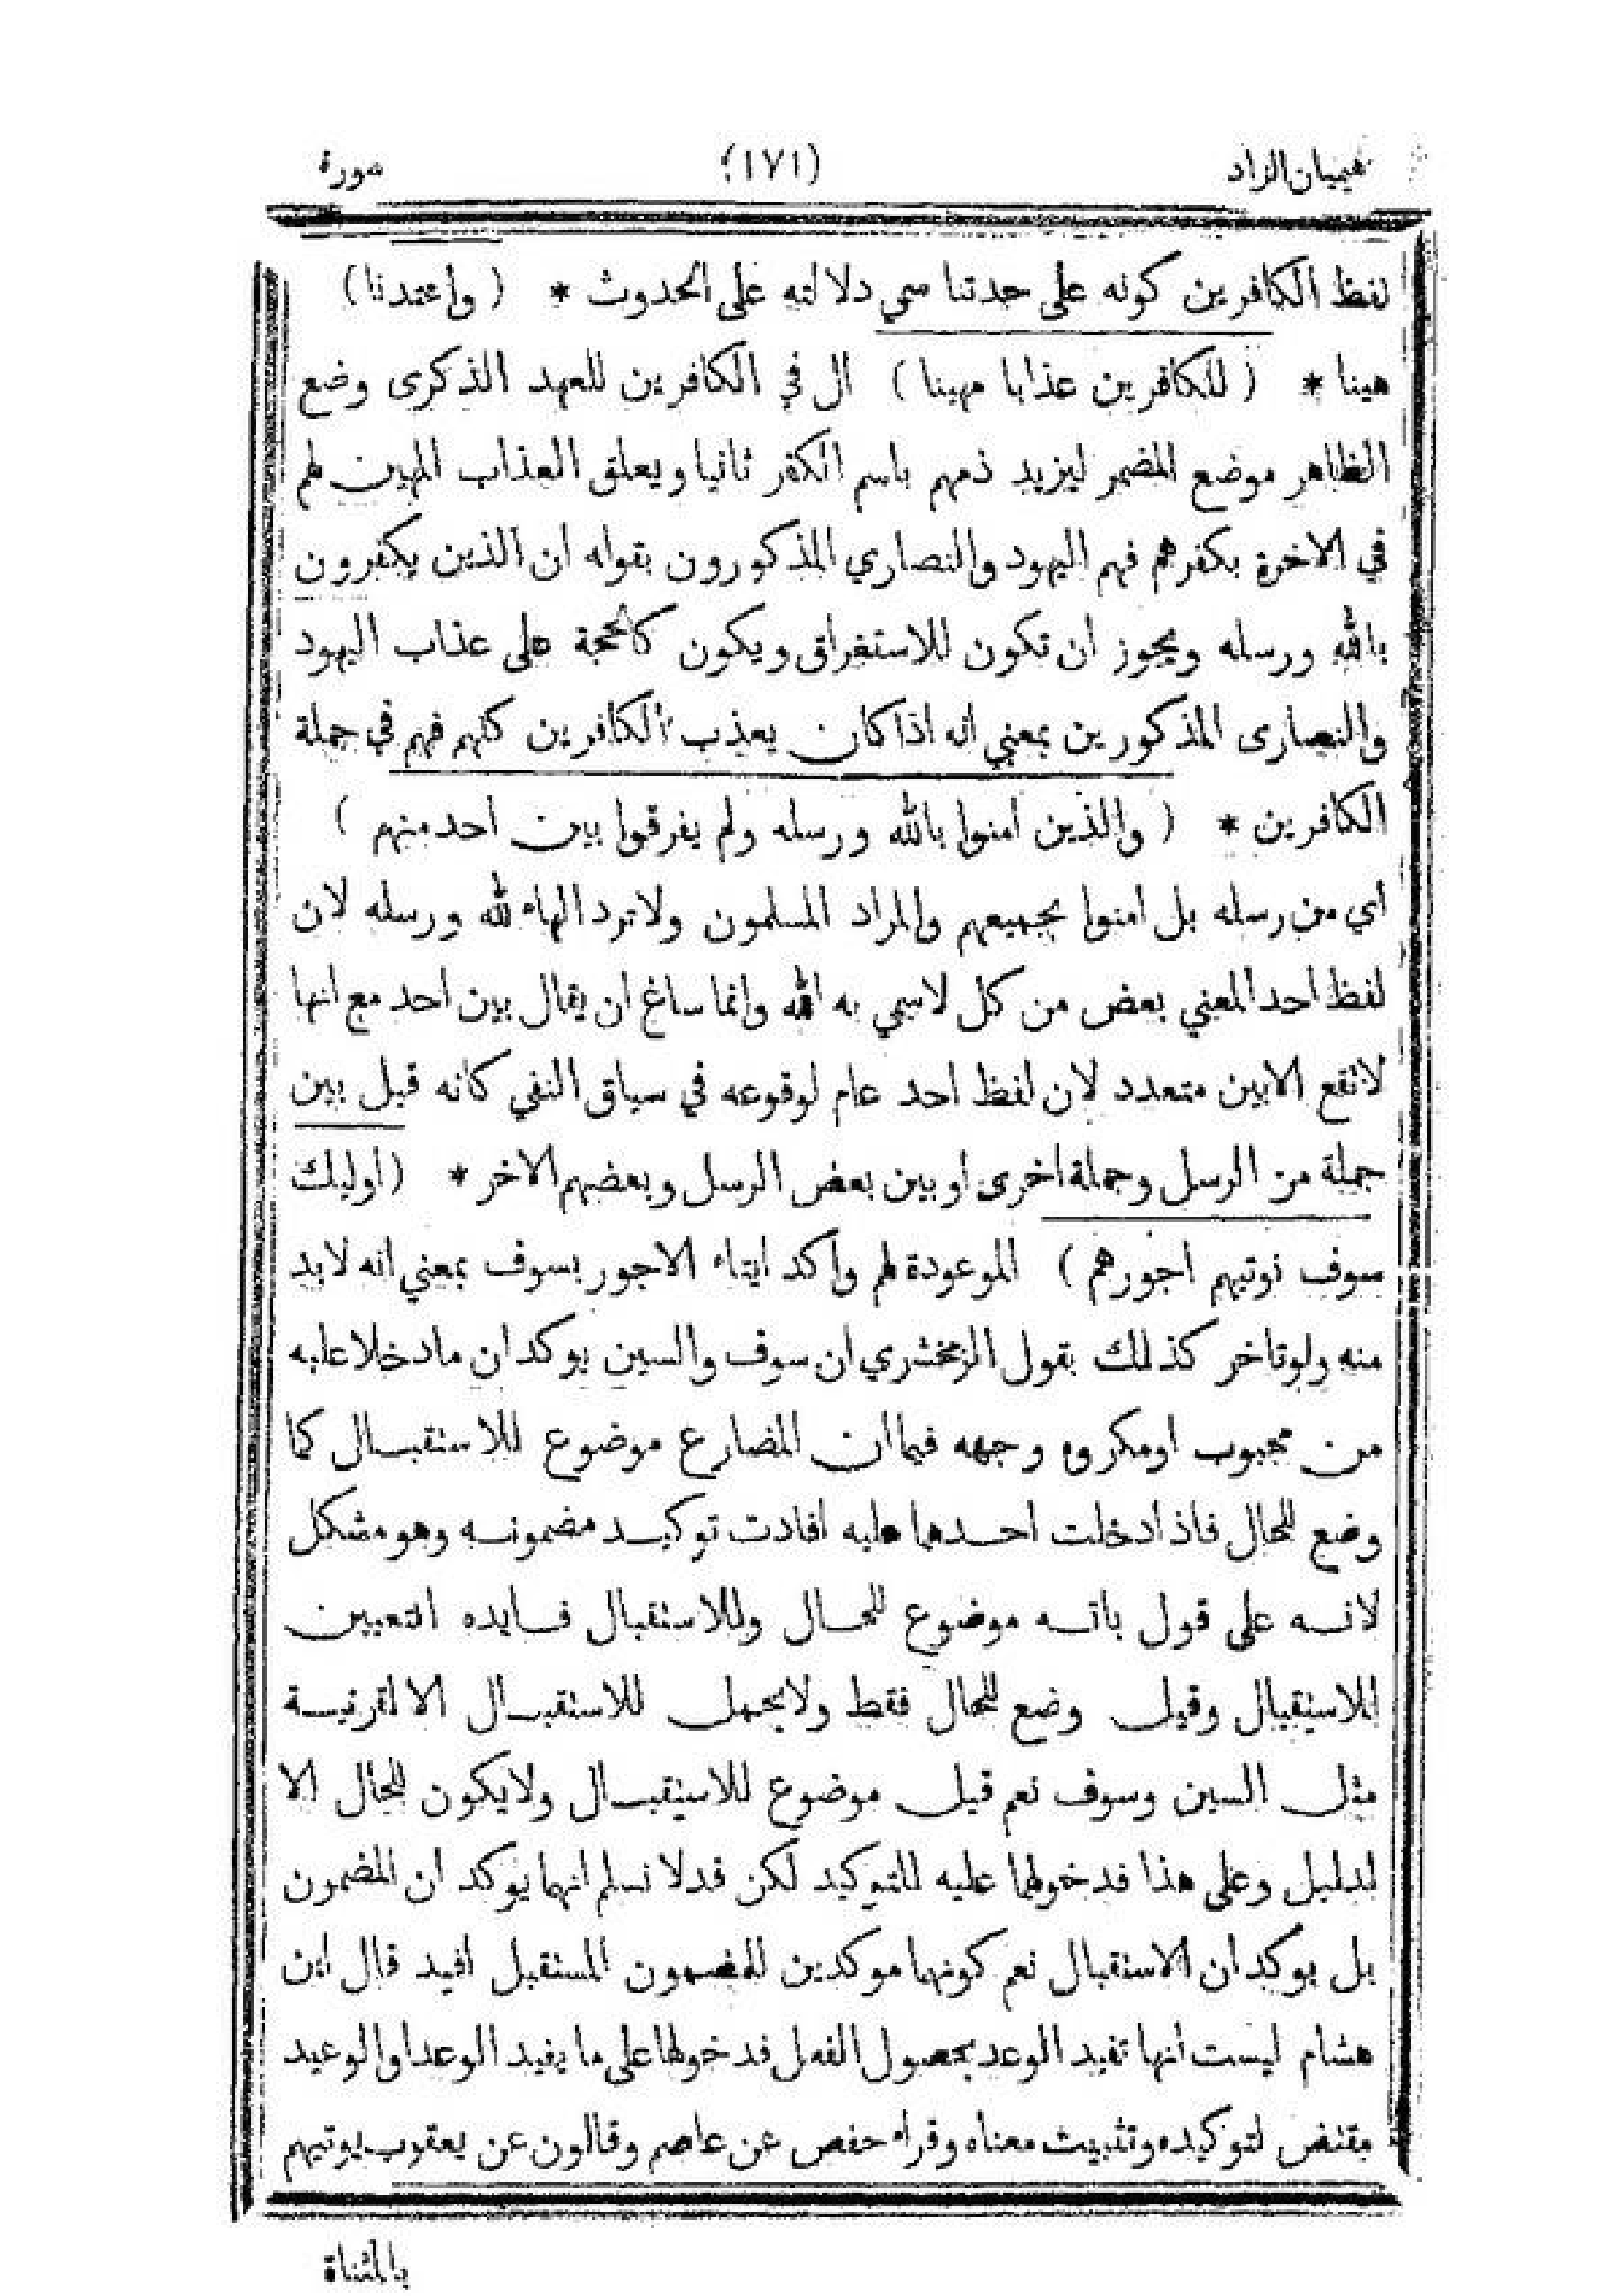 هيميان الزاد (١٧١) سورة
لفظ الكافرين كونه على حدتنا سي دلالته على الحدوث * ( واعتدنا )
هينا * ( للكافرين عذابا مهينا ) ال في الكافرين للعهد الذكرى وضع
الظاهر موضع المضمر ليزيد ذمهم باسم الكفر ثانيا ويعلق العذاب المهين لهم
في الاخرة بكفرهم فهم اليهود والنصاري المذكورون بقوله ان الذين يكفرون
بالله ورسله ويجوز ان تكون للاستغراق ويكون كالحجة على عذاب اليهود
والنصارى المذكورين بمعني انه اذا كان يعذب الكافرين كلهم فهم في جملة
الكافرين * ( والذين امنوا بالله ورسله ولم يفرقوا بين احد منهم )
اي من رسله بل امنوا بجميعهم والمراد المسلمون ولا ترد الهاء لله ورسله لان
لفظ احد المعني بعض من كل لاسمي به الله وانما ساغ ان يقال بين احد مع انها
لاتقع الابين متعدد لان لفظ احد عام لوقوعه في سياق النفي كانه قيل بين
جملة من الرسل وجملة اخرى او بين بعض الرسل وبعضهم الاخر * ( اوليك
سوف نوتيهم اجورهم ) الموعودة لهم واكد ايتاء الاجور بسوف بمعني انه لابد
منه ولوتاخر كذلك بقول الزمخشري ان سوف والسين يوكدان مادخلا عليه
من محبوب اومكروه وجهه فيما ان المضارع موضوع للاستقبال كما
وضع للحال فاذ ادخلت احدهما عليه افادت توكيد مضمونه وهو مشكل
لانه على قول بانه موضوع للحال وللاستقبال فايده التعيين
للاستقبال وقيل وضع للحال فقط ولايحمل للاستقبال الا لقرنيسة
مثل السين وسوف نعم قيل موضوع للاستقبال ولايكون للحال الا
لدليل وعلى هذا فدخولهما عليه للتوكيد لكن قدلا نسلم انهما يوكد ان المضمون
بل يوكدان الاستقبال نعم كونهما موكدين للمضمون المستقبل افيد قال ابن
هشام ليست انها تفيد الوعد بحصول الفعل فدخولها على ما يفيد الوعد اوالوعيد
مقتض لتوكيده وتثبيت معناه وقراء حفص عن عاصم وقالون عن يعقوب يوتيهم
بالمثناة